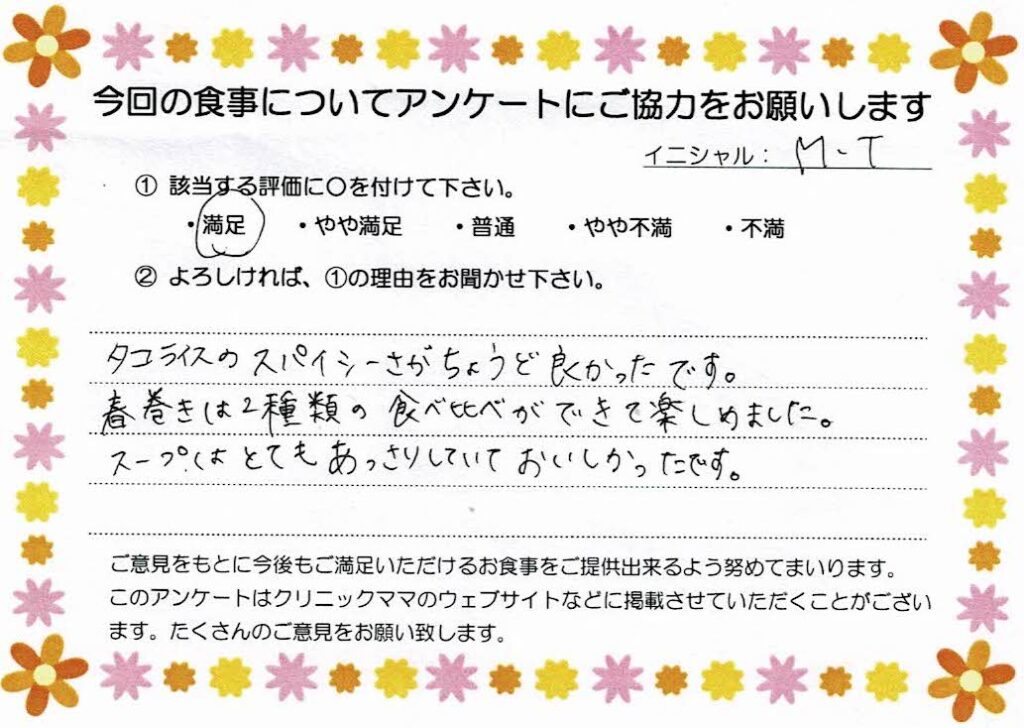 今回の食事についてアンケートにご協力をお願いします
イニシャル： M-T
① 該当する評価に〇を付けて下さい。
・満足 ・やや満足 ・普通 ・やや不満 ・不満
② よろしければ、①の理由をお聞かせ下さい。
タコライスのスパイシーさがちょうど良かったです。
春巻きは2種類の食べ比べができて楽しめました。
スープはとてもあっさりしていておいしかったです。
ご意見をもとに今後もご満足いただけるお食事をご提供出来るよう努めてまいります。
このアンケートはクリニックママのウェブサイトなどに掲載させていただくことがござい
ます。たくさんのご意見をお願い致します。